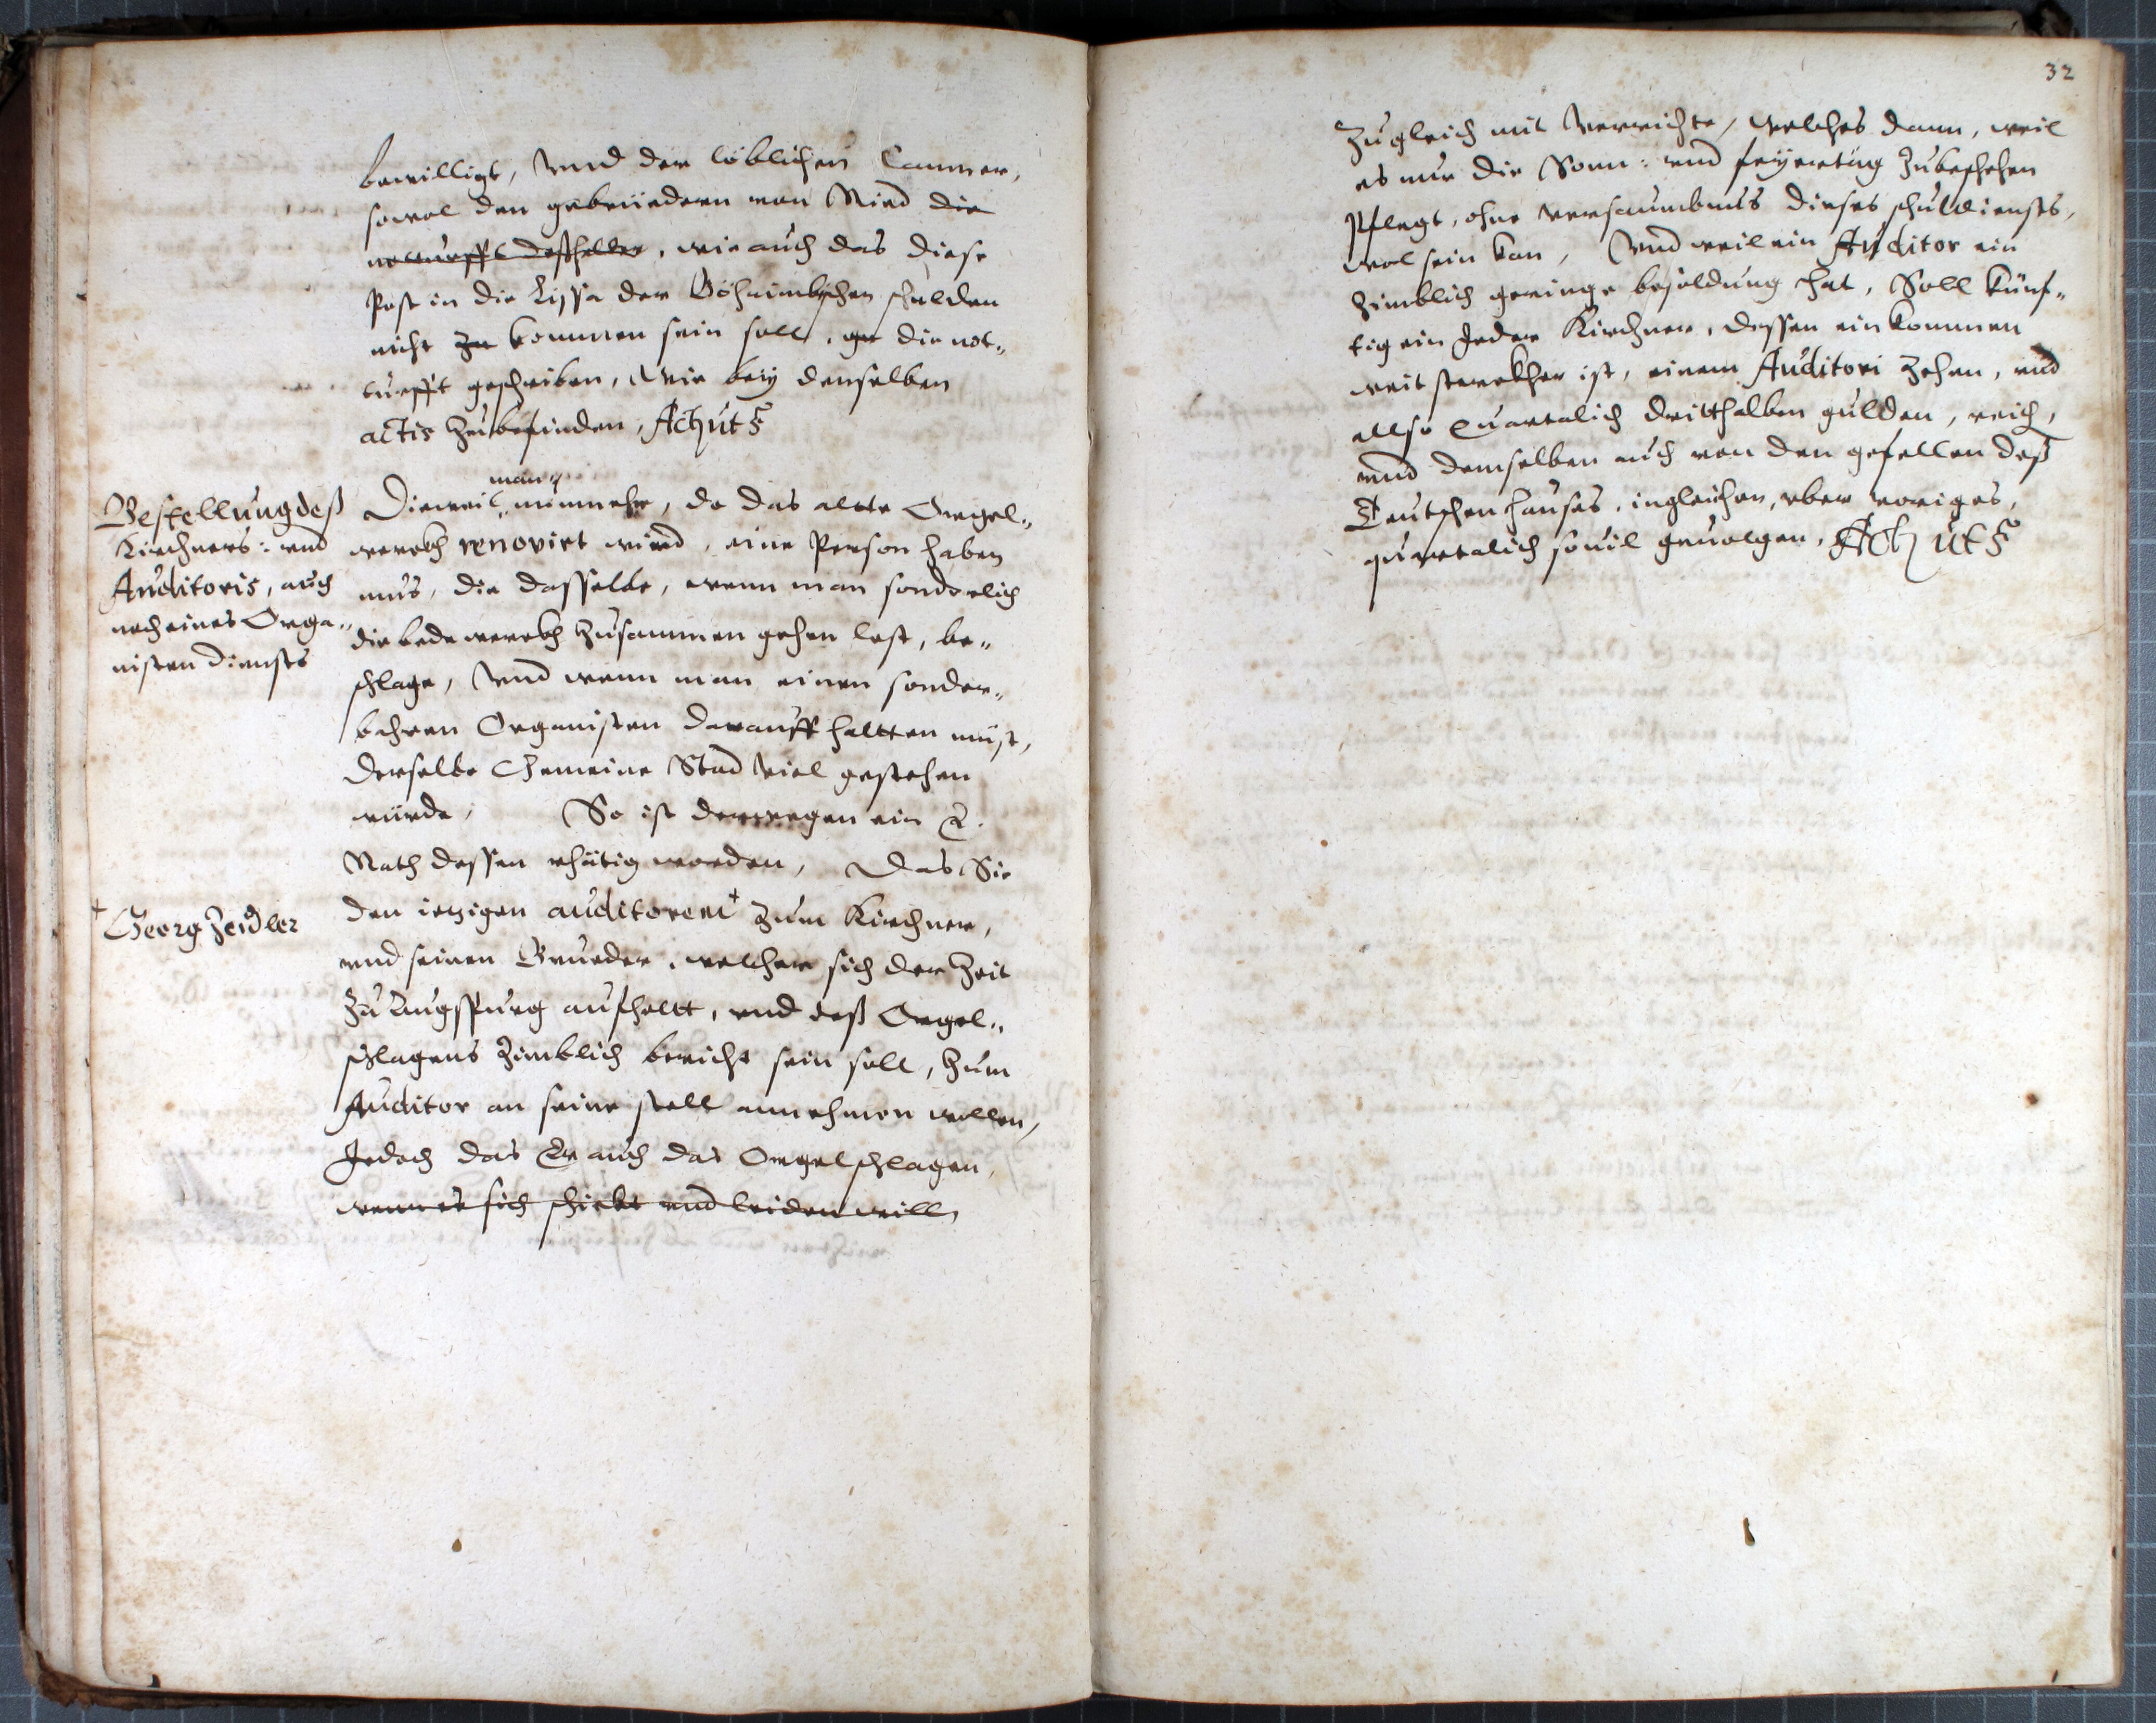 bewilligt, vnd der löblichen Cammer,
sowol den gebrüedern von Ried die
notturfft desshalber, wie auch das diese
Post in die Lissa der Böhaimbschen schulden
nicht zu kommen sein soll, ge die not„
turfft geschriben, Wie bey denselben
actis zubefinden, Act3 ut 5
man
Bestellung deß
Kirchners: vnd
Auditoris, auch
noch eines Orga„
nisten diensts
Dieweil nunmehr, do das allte Orgel„
werckh renovirt wird, eine Person haben
mus, die dasselbe, wenn man sonderlich
die bede werckh zusammen gehen lest, be„
schlage, Vnd wenn man einen sonder„
bahren Organisten darauff hallten müst,
derselbe Gemeine Stad viel gestehen
würde, So ist derwegen ein E.
Rath dessen rhätig worden, Das Sie
den ietzigen auditorem+ zum Kirchner,
+ Georg Zeidler
vnd seinen Brueder, welcher sich der Zeit
zu Augspurg aufhellt, vnd deß Orgel„
schlagens zimblich bericht sein soll, zum
Auditor an seine stell annehmen wollen,
Jedoch das Er auch das Orgelschlagen,
wenn es sich schickt vnd leiden will,
32
zugleich mit Verrichte, Welches dann, weil
es nur die Sonn: vnd feyertäg zubeschehen
Pflegt, ohne versaumbnus dieses schuldiensts,
wol sein kan, Vnd weil ein Auditor ein
zimblich geringe besoldung hat, Soll künf„
tig ein Jeder Kirchner, dessen einkommen
weit sterckher ist, einem Auditori zehen, vnd
allso Quartalich dritthalben gulden, reich,
vnd demselben auch von den gefellen deß
Teutschen hauses, ingleichen, vber voriges,
quartalich souil geuolgen, Act3 ut 5